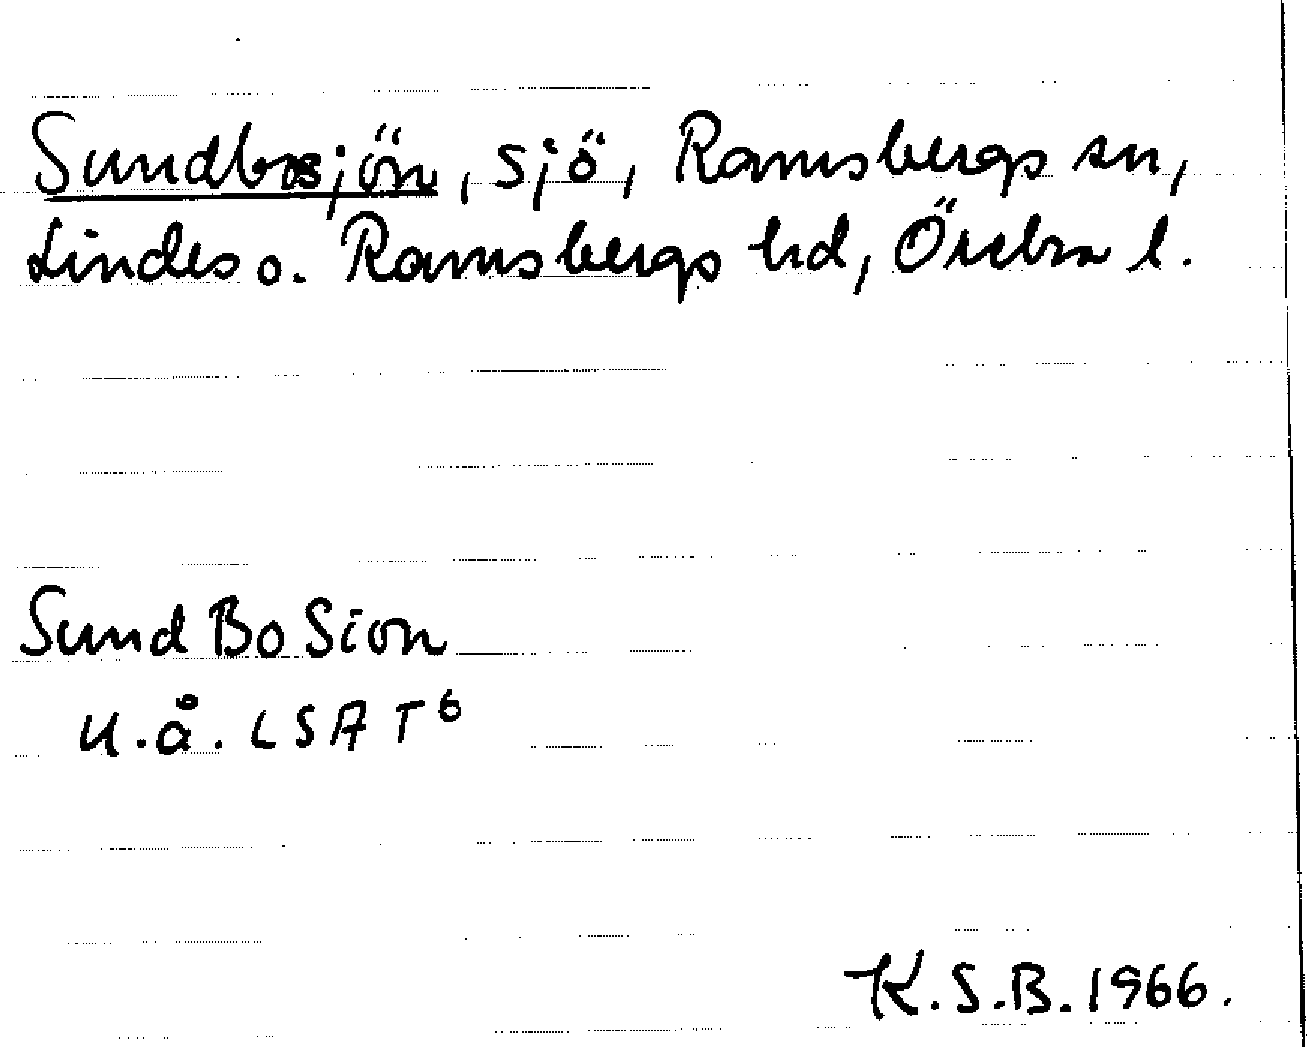 Sundbosjön, sjö, Ramsbergs sn,
Lindes o. Ramsbergs hd, Örebro l.
Sund Bo Sion
u.å. LSA T6
K.S.B. 1966.